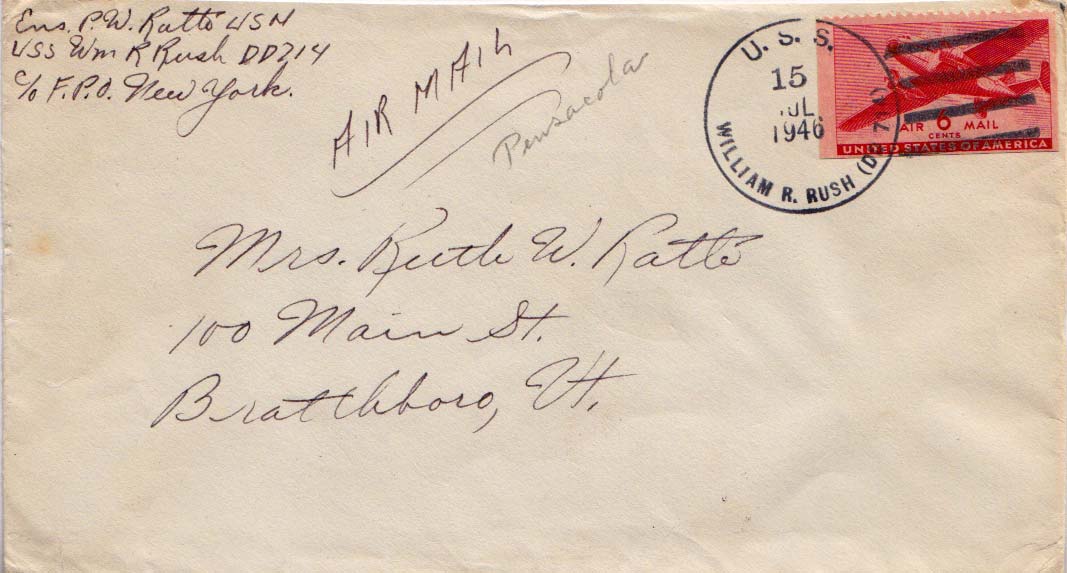 Ens. P. W. Ratté USN
USS Wm R Rush DD714
c/o F.P.O. New York.
AIR MAIL
Pensacola
U. S. S.
15
JUL
1946
WILLIAM R. RUSH (DD 714)
AIR 6 MAIL
CENTS
UNITED STATES OF AMERICA
Mrs. Ruth W. Ratté
100 Main St.
Brattleboro, Vt.